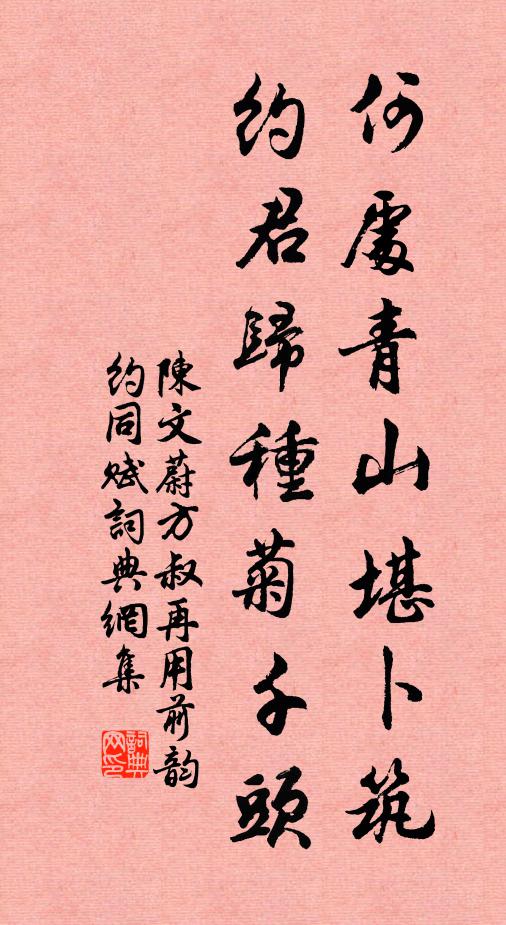 何處青山堪卜筑
約君歸種菊千頭
陳文蔚方叔再用前韵
約同賦詞典網集
詞典網印